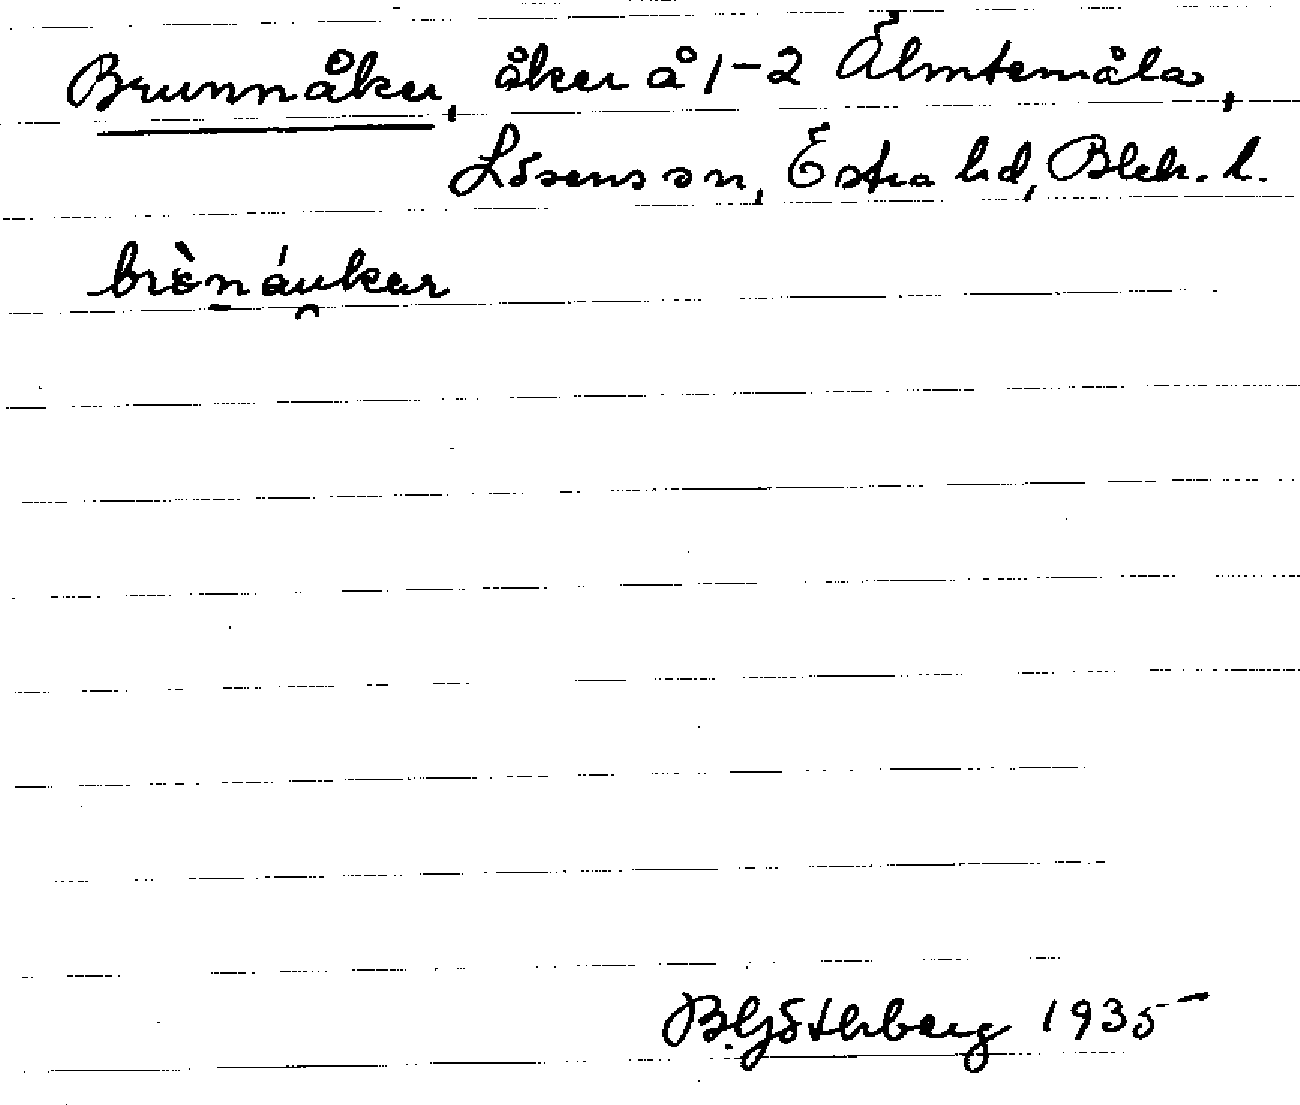 Brunnåker, åker å 1-2 Älmtemåla,
Lösens sn, Östra hd, Blek. l.
brènáukar
B. Göthberg 1935